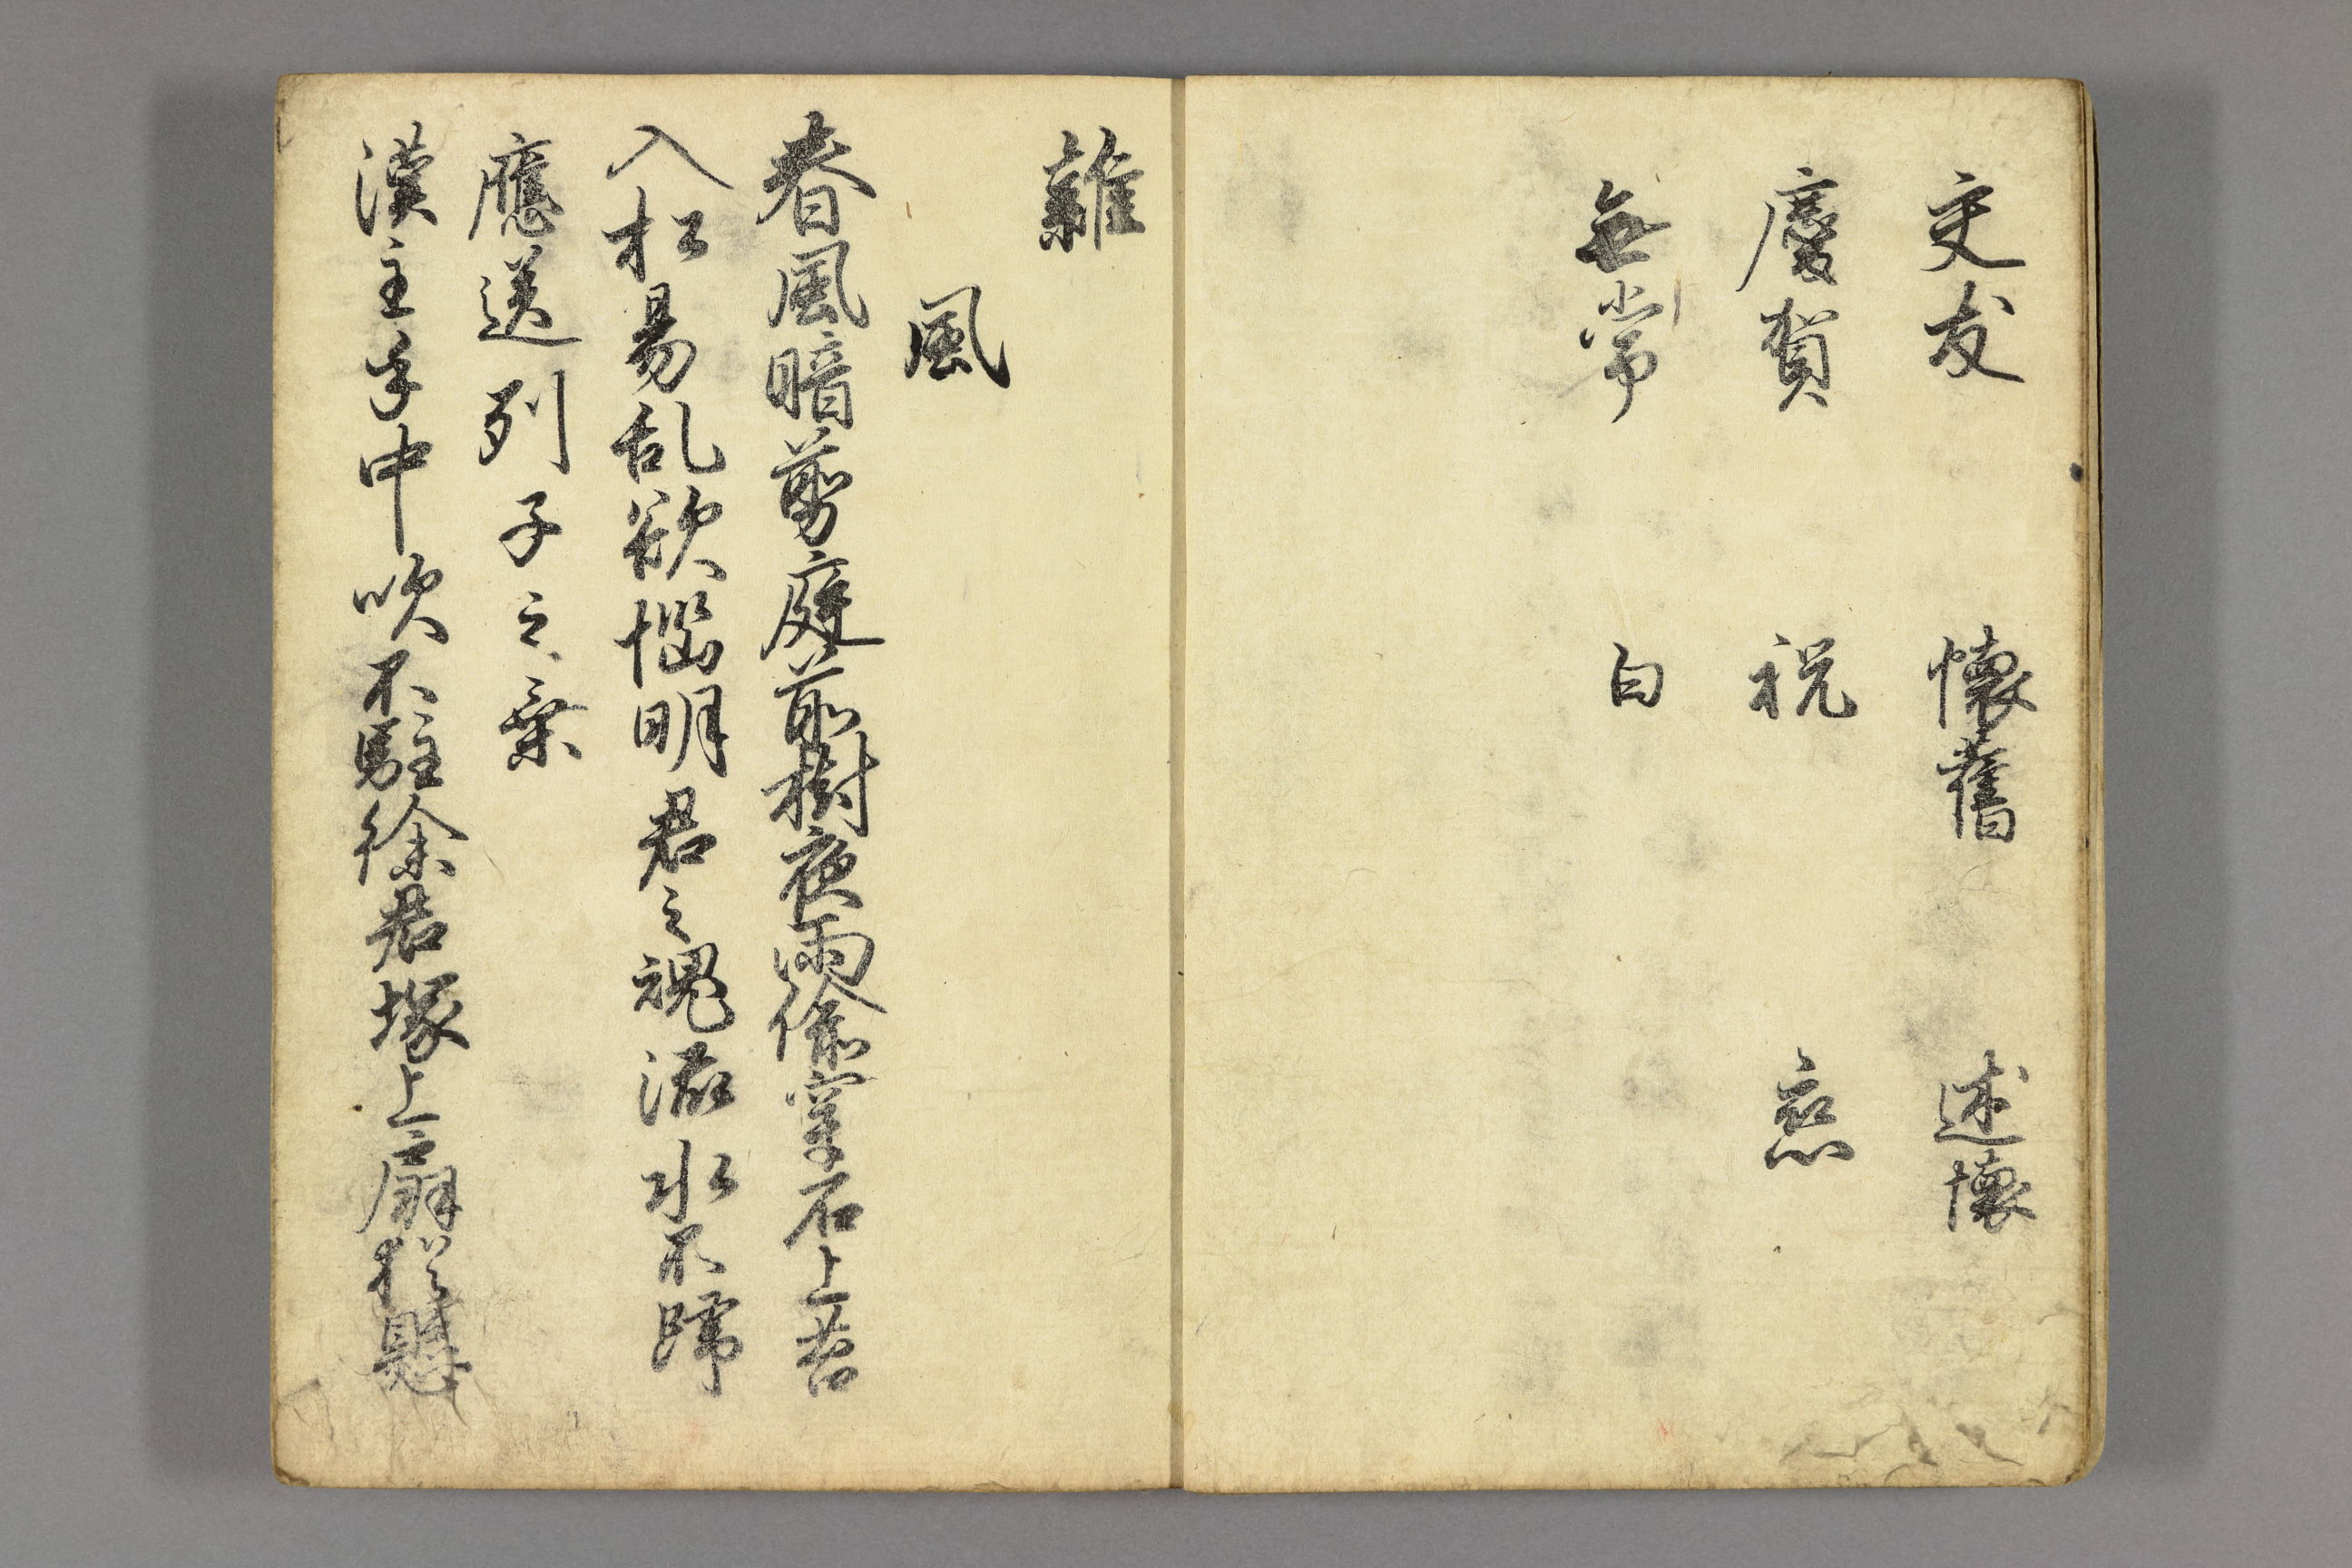 交友 懐舊 述懐
慶賀 祝 恋
無常 白
雜
風
春風暗剪庭前樹夜雨偸穿石上苔
入松易乱欲惱明君之魂流水不歸
應送列子之乗
漢主手中吹不駐徐君塚上扇猶懸